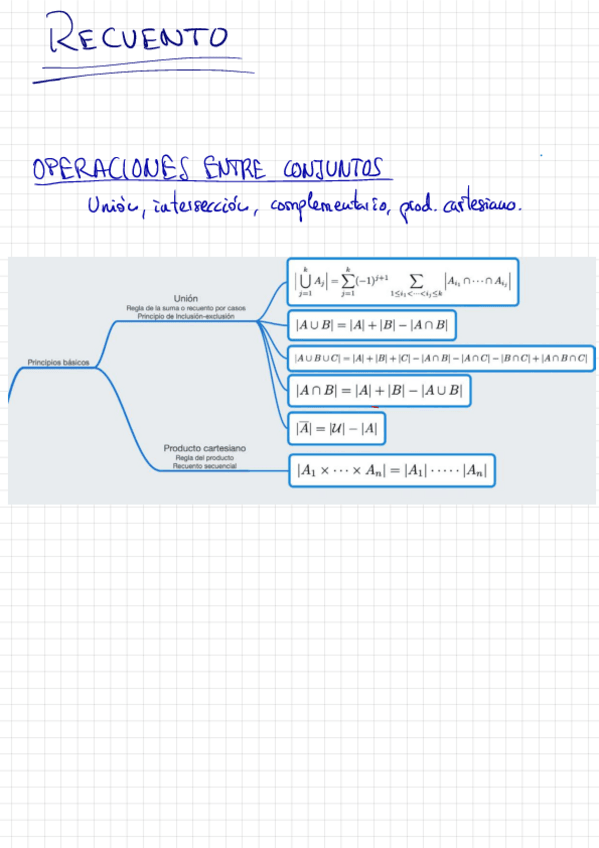 RECUENTO
OPERACIONES ENTRE CONJUNTOS
Unión, intersección, complementario, prod. cartesiano.
Principios básicos
Unión
Regla de la suma o recuento por casos
Principio de Inclusión-exclusión
|⋃_{j=1}^{k} A_j| = ∑_{j=1}^{k} (-1)^{j+1} ∑_{1≤i_1<···<i_j≤k} |A_{i_1} ∩ ··· ∩ A_{i_j}|
|A ∪ B| = |A| + |B| − |A ∩ B|
|A ∪ B ∪ C| = |A| + |B| + |C| − |A ∩ B| − |A ∩ C| − |B ∩ C| + |A ∩ B ∩ C|
|A ∩ B| = |A| + |B| − |A ∪ B|
|A̅| = |𝒰| − |A|
Producto cartesiano
Regla del producto
Recuento secuencial
|A_1 × ··· × A_n| = |A_1| · ··· · |A_n|